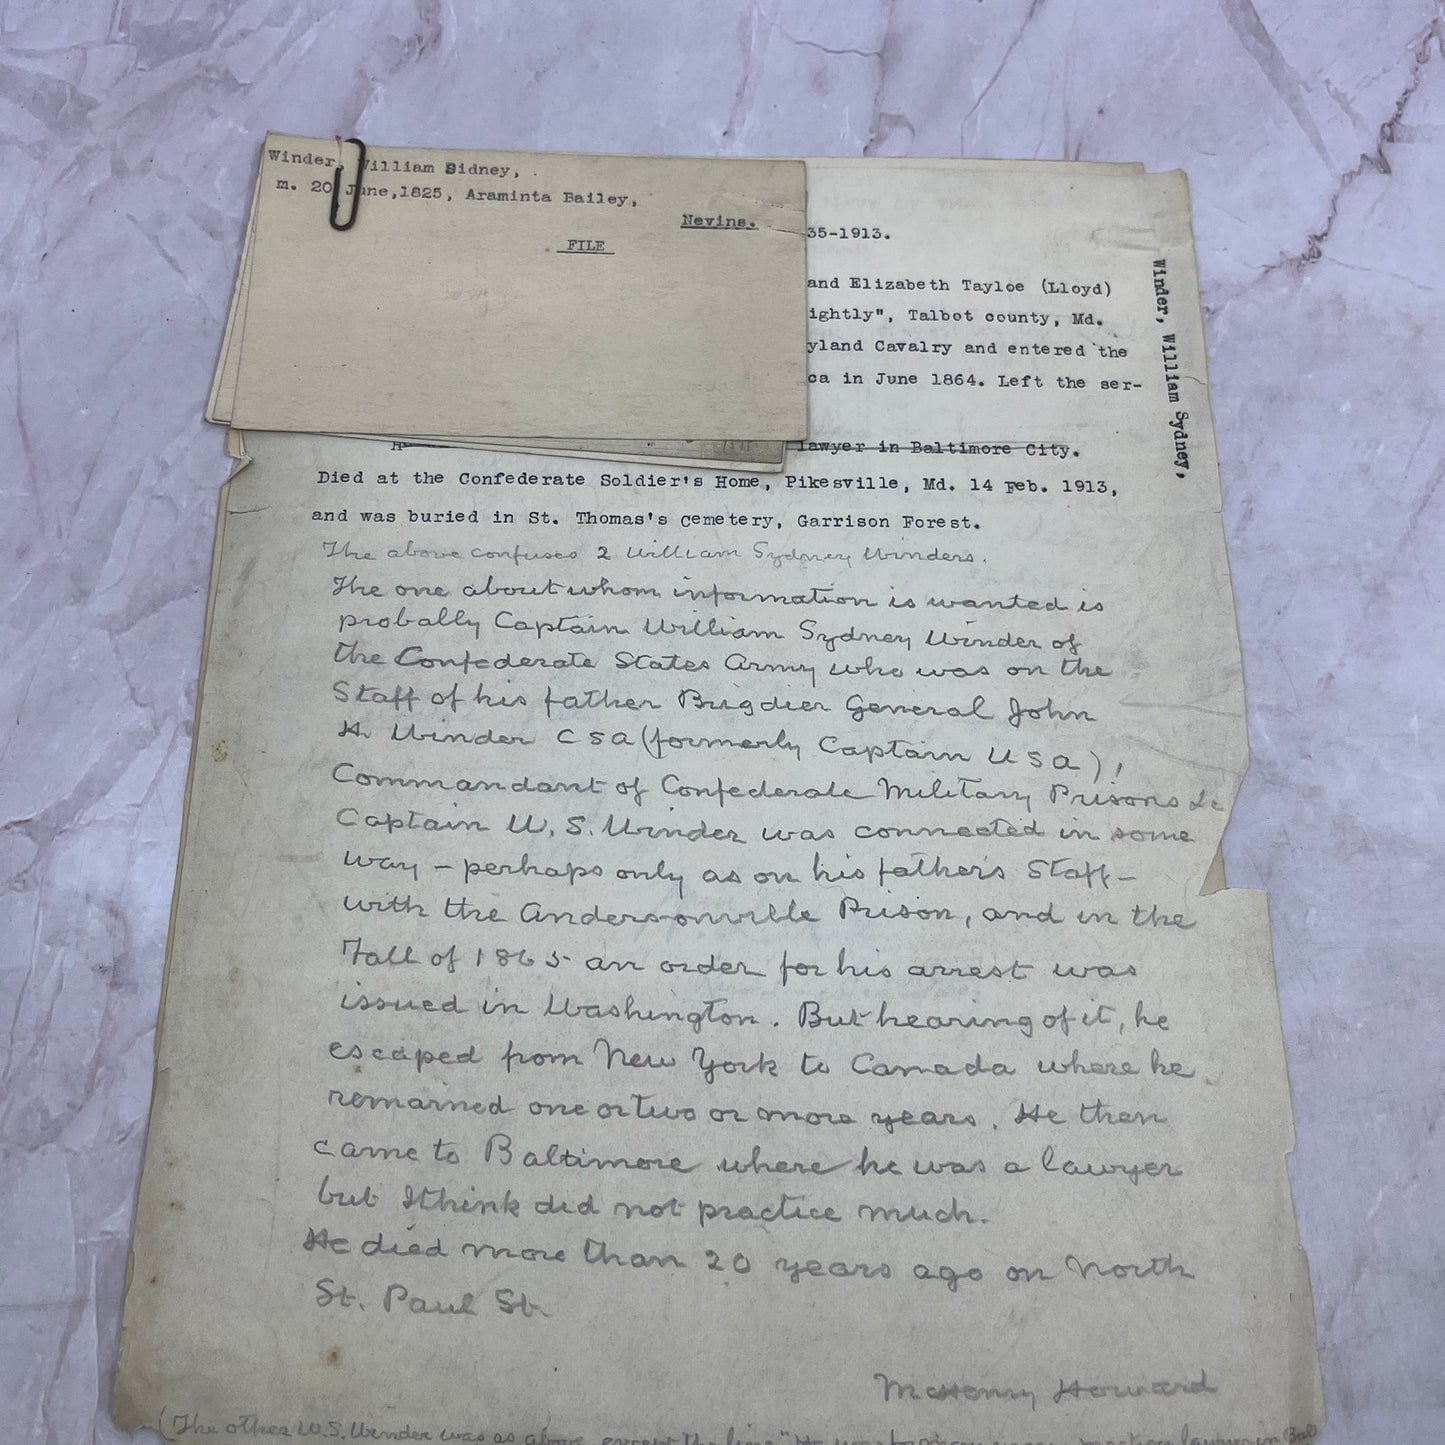 Winder, William Sidney,
m. 20 June,1825, Araminta Bailey,
Nevins.
FILE
Winder, William Sydney,
35-1913.
and Elizabeth Tayloe (Lloyd)
ightly", Talbot county, Md.
yland Cavalry and entered the
ca in June 1864. Left the ser-
lawyer in Baltimore City.
Died at the Confederate Soldier's Home, Pikesville, Md. 14 Feb. 1913,
and was buried in St. Thomas's Cemetery, Garrison Forest.
The above confuses 2 William Sydney Winders.
The one about whom information is wanted is
probably Captain William Sydney Winder of
the Confederate States Army who was on the
Staff of his father Brigdier General John
H. Winder CSA (formerly Captain USA),
Commandant of Confederate Military Prisons &c
Captain W. S. Winder was connected in some
way – perhaps only as on his father's Staff –
with the Andersonville Prison, and in the
Fall of 1865 an order for his arrest was
issued in Washington. But hearing of it, he
escaped from New York to Canada where he
remained one or two or more years. He then
came to Baltimore where he was a lawyer
but I think did not practice much.
He died more than 20 years ago on North
St. Paul St.
McHenry Howard
(The other W.S. Winder was as above except the line "He was lawyer in Balt